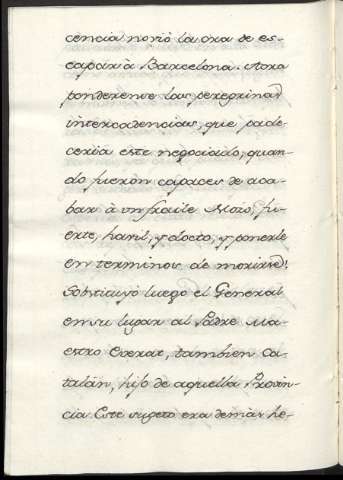 cencia no vió la ora de es-
capar à Barcelona. Aora
ponderense las peregrinas
intercadencias, que pade-
ceria este negociado, quan-
do fueron capaces de aca-
bar à vn fraile Mozo, fu-
erte, havil, y docto, y ponerle
en terminos de morirse!
Sobstituyó luego el General
en su lugar al Padre Ma-
estro Everar, tambien Ca-
talán, hijo de aquella Provin-
cia. Este sugeto era de mas he-